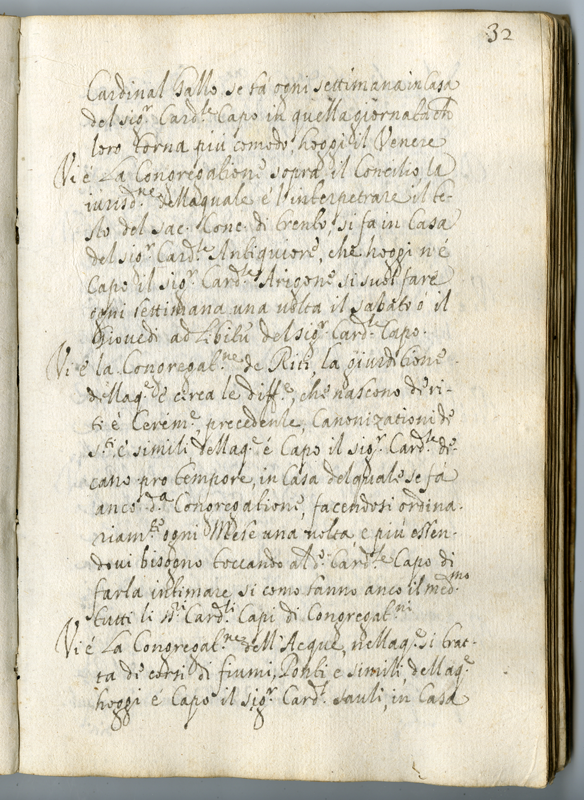 32
Cardinal Gallo se fa ogni settimana in Casa
del sig.r Card.le Capo in quella giornata ch
loro torna più comodo, hoggi il Venere
Vi è La Congregatione sopra il Concilio, la
iurisd.ne dellaquale è l'interpetrare il te-
sto del sac. Conc. di trento, si fa in Casa
del sig.r Card.le Antiquiore, che hoggi n'è
Capo il sig.r Card.le Arigone si suol fare
ogni settimana una volta il sabato o il
Giovedi ad libitũ del sig.r Card.le Capo.
Vi è la Congregat.ne de Riti, la giuriditione
dellaq.e è circa le diff.e, che nascono de ri-
ti è Cerem.e, precedente, Canonizationi de
s.ti e simili dellaq.e é Capo il sig.r Card.le de-
cano pro tempore, in Casa delquale se fà
anco d.a Congregatione, facendosi ordina-
riam.te ogni Mese una volta, e più essen-
dovi bisogno toccando al d.o Card.le Capo di
farla intimare, si come fanno anco il med.mo
tutti li ss.ri Card.li Capi di Congregat.ni
Vi è La Congregat.ne dell'Acque, nellaq.e si trat-
ta de corsi di fiumi, Ponti e simili dellaq.e
hoggi è Capo il sig.r Card.le sauli, in Casa